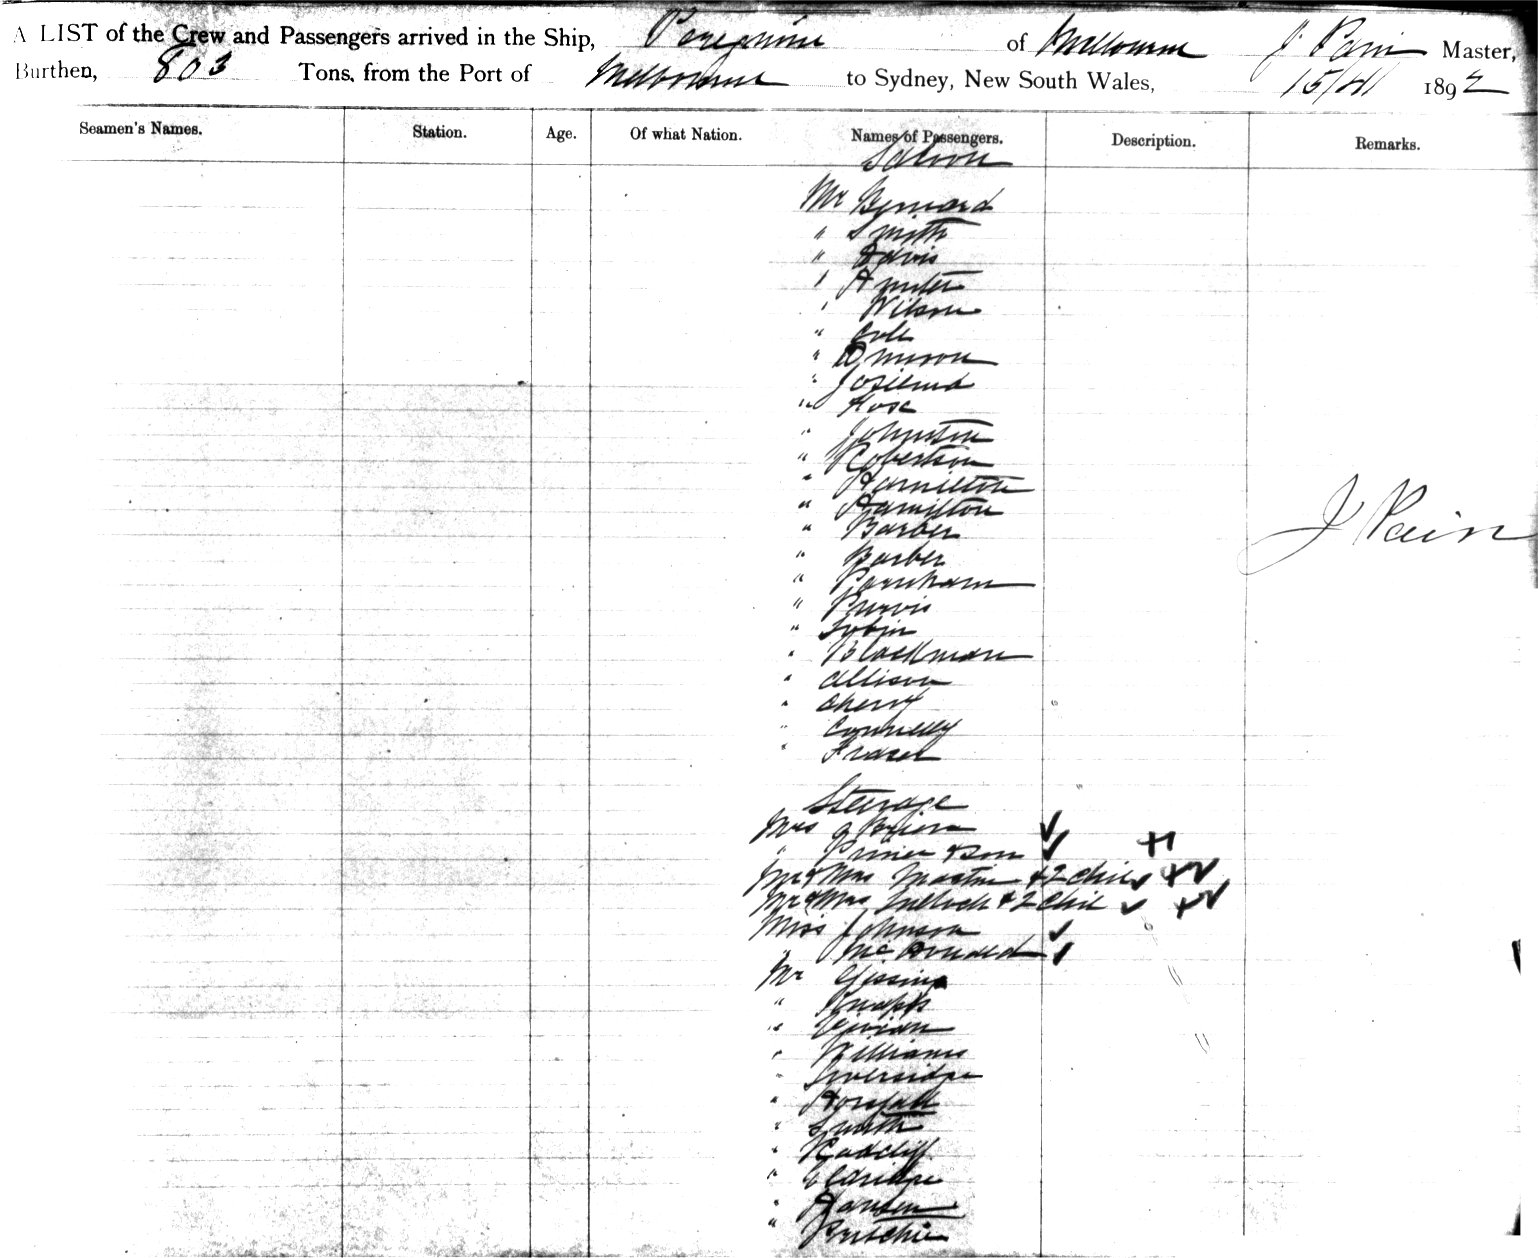 A LIST of the Crew and Passengers arrived in the Ship, Peregrine of Melbourne J Pain Master,
Burthen, 803 Tons, from the Port of Melbourne to Sydney, New South Wales, 1892
Seamen's Names. Station. Age. Of what Nation. Names of Passengers. Description. Remarks.
Saloon
Mr Bernard
" Smith
" Davis
" Hunter
" Wilson
" Cole
"
"
" Rose
" Johnston
" Robertson
" Hamilton
" Hamilton
" Barber
J Pain
" Barber
" Parnham
" Purvis
" Tobin
" Blackman
" Allison
" Cherry
" Connelly
" Fraser
Steerage
Mrs
" & Son
Mr & Mrs Martin & 2 Chil
Mr & Mrs & 2 Chil
Miss Johnson
" McDonald
Mr Gissing
" Knapp
" Vivian
" Williams
" Liversidge
" Horsfall
" Smith
" Radcliff
" Eldridge
" Hansen
" Ritchie